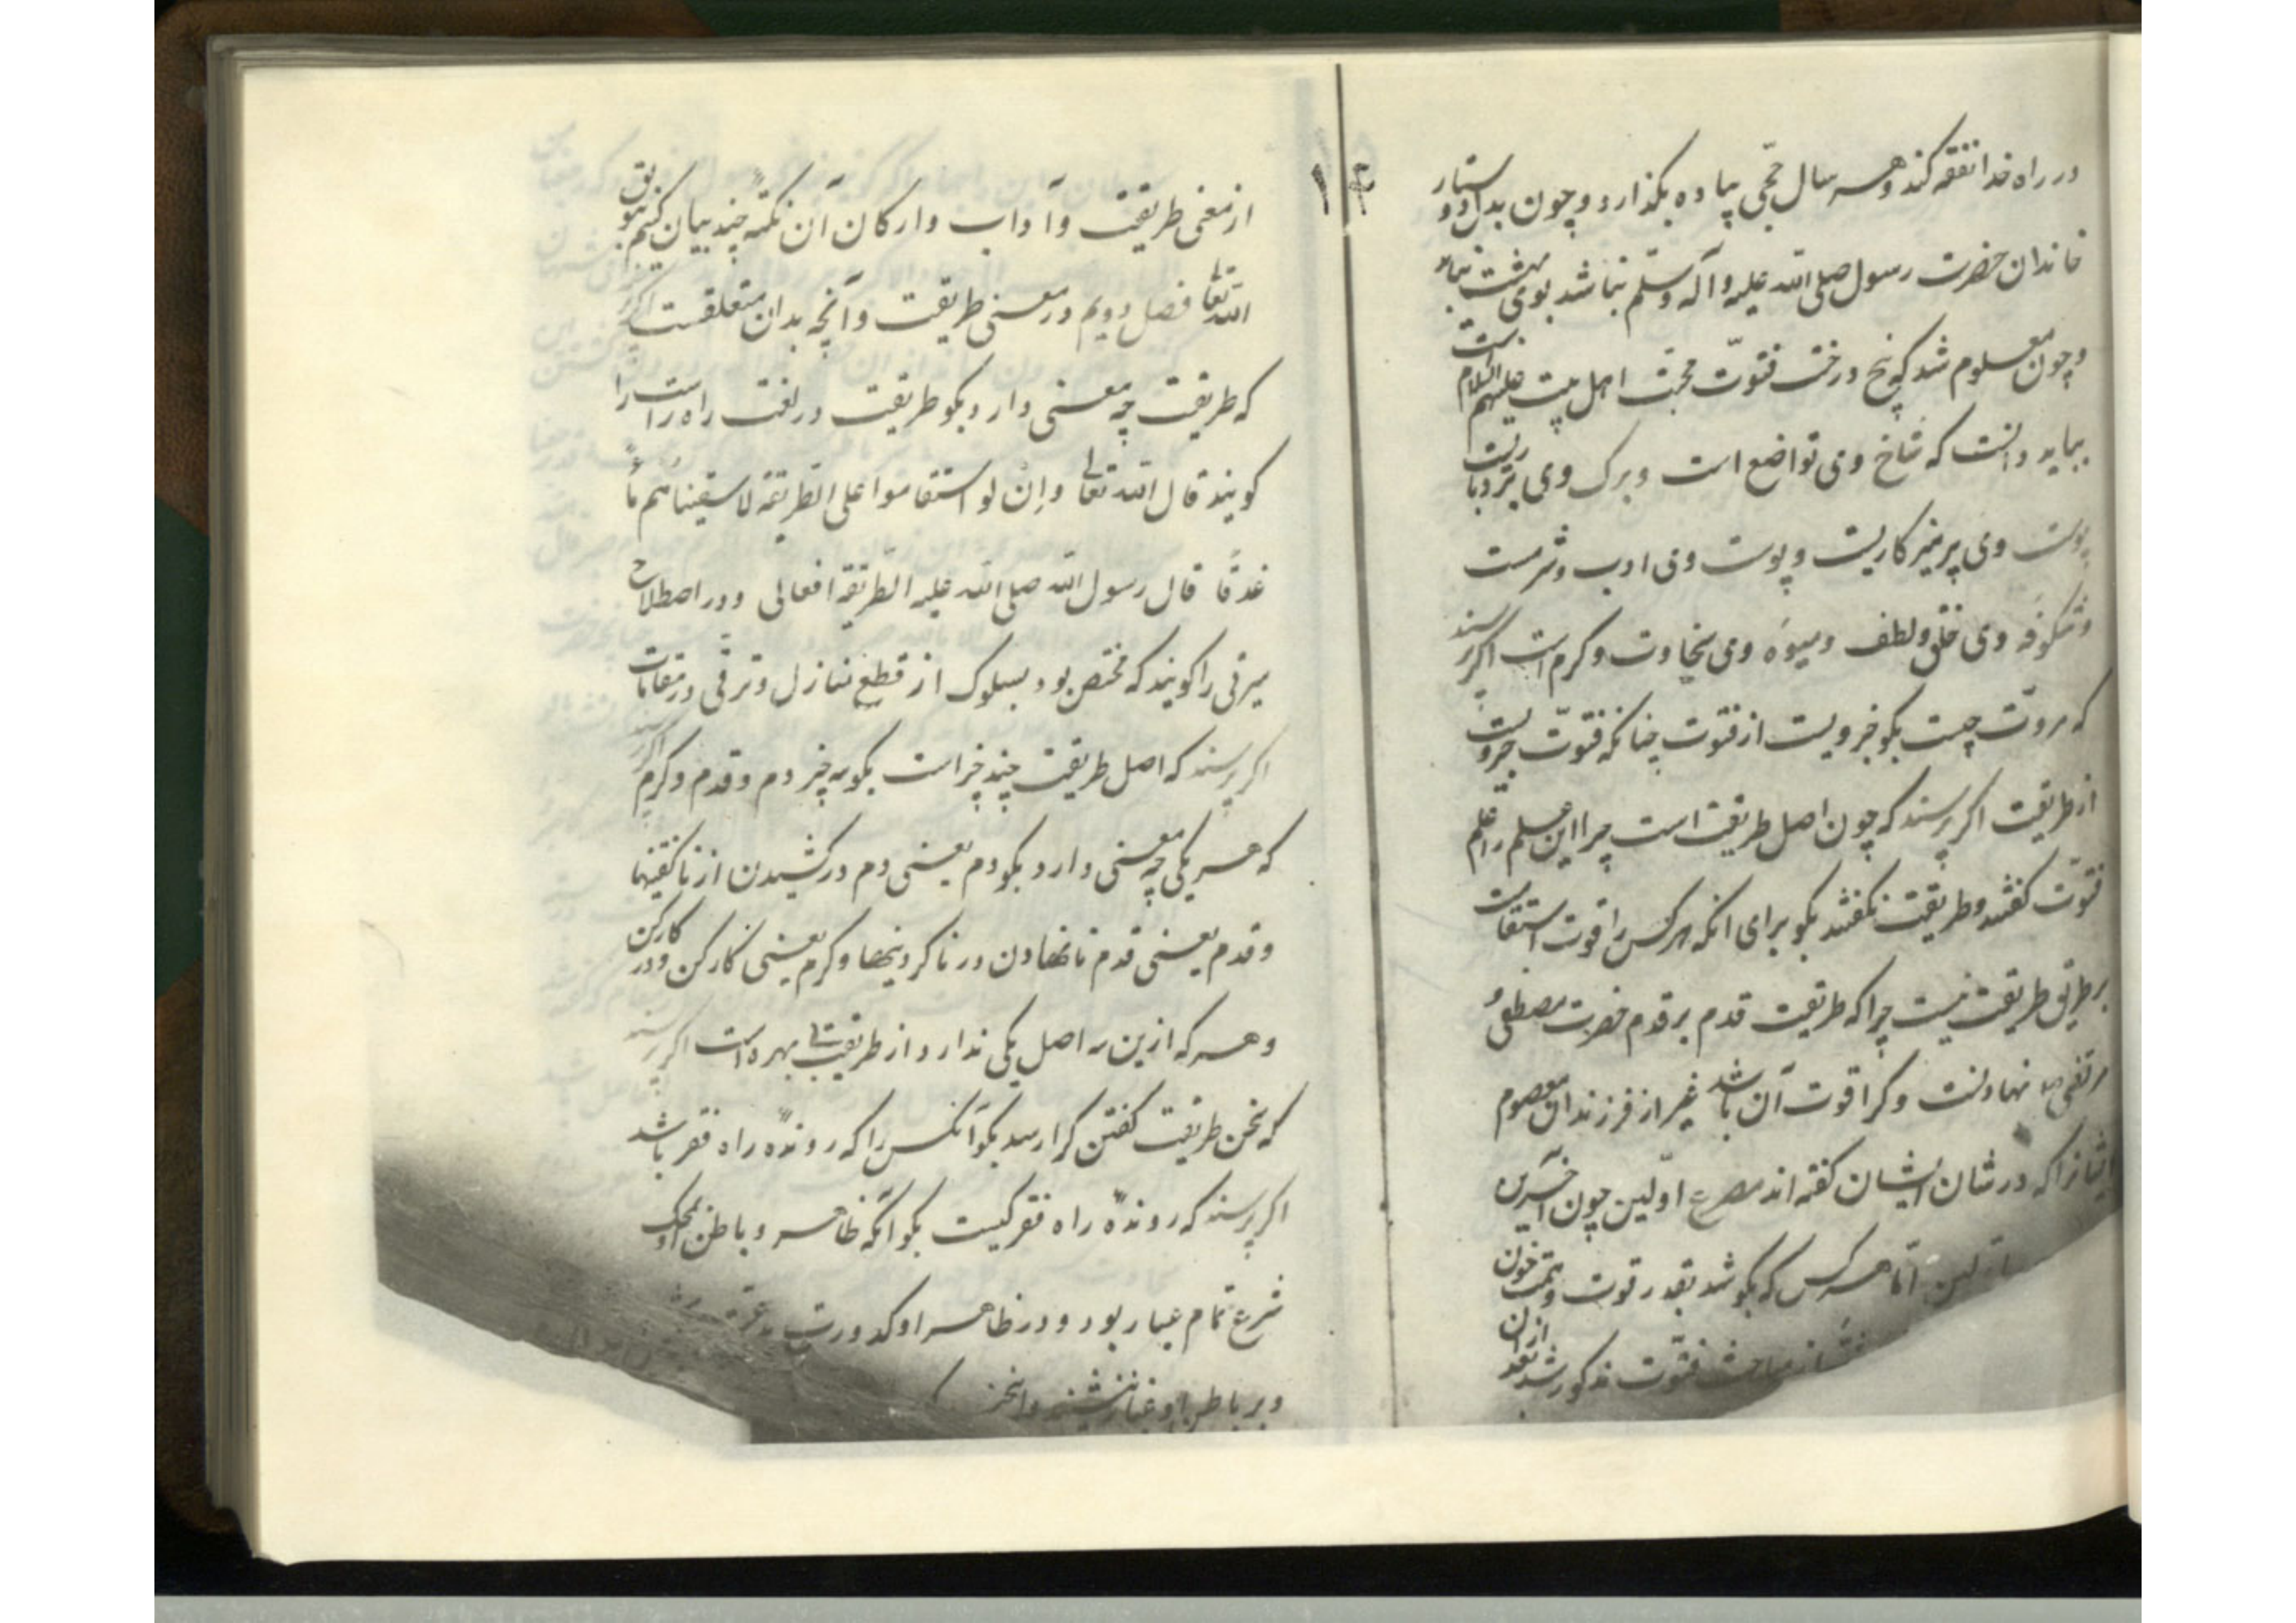 در راه خدا نفقه کند و هر سال حجّی پیاده بگذارد و چون بدل دوستدار
خاندان حضرت رسول صلی الله علیه و آله و سلّم نباشد بوی بهشت نیابد
و چون معلوم شد که بیخ درخت فتوّت محبّت اهل بیت علیهم السلام است
بباید دانست که شاخ وی تواضع است و برک وی بردباریت
وی پرهیزکاریت و پوست وی ادب و شرمست
و شکوفه وی خلق و لطف و میوه وی سخاوت و کرم است اگر پرسند
که مروّت چیست بگو جزویست از فتوت چنانکه فتوّت جزویست
از طریقت اگر پرسند که چون اصل طریقت است چرا این علم را علم
فتوّت گفتند و طریقت نگفتند بگو برای آنکه هر کس را قوت استقامت
بر طریق طریقت نیست چرا که طریقت قدم بر قدم حضرت مصطفی و
مرتضی نهادنست و کرا قوت آن باشد غیر از فرزندان معصوم
ایشانرا که در شان ایشان گفته اند مصرع اوّلین چون آخرین
امّا هر کس که بکوشد بقدر قوت و همّت خون
از مباحث فتوّت مذکور شد بعد ازان
١٢
از معنی طریقت و آداب و ارکان آن نکتهٔ چند بیان کنیم بتوفیق
الله تعالی فصل دویم در معنی طریقت و آنچه بدان متعلقست اگر
که طریقت چه معنی دارد بگو طریقت در لغت راه راست را
گویند قال الله تعالی و اِنْ لو استقاموا علی الطریقه لاسقیناهم ماءً
غدقًا قال رسول الله صلی الله علیه الطریقه افعالی و در اصطلاح
سیرتی را گویند که مختص بود بسلوک از قطع منازل و ترقّی در مقامات
اگر پرسند که اصل طریقت چند چیز است بگو سه چیز دم و قدم و کرم اگر پرسند
که هر یکی چه معنی دارد بگو دم یعنی دم در کشیدن از ناگفتنیها
و قدم یعنی قدم نانهادن در ناکردنیها و کرم یعنی کار کن و در کار کن
و هر که ازین سه اصل یکی ندارد از طریقت بی بهره است اگر پرسند
که سخن طریقت گفتن کرا رسد بگو آنکس را که روندهٔ راه فقر باشد
اگر پرسند که روندهٔ راه فقر کیست بگو آنکه ظاهر و باطن او بمحک
شرع تمام عیار بود و در ظاهر او کدورت
و بر باطن او غبار ننشیند و